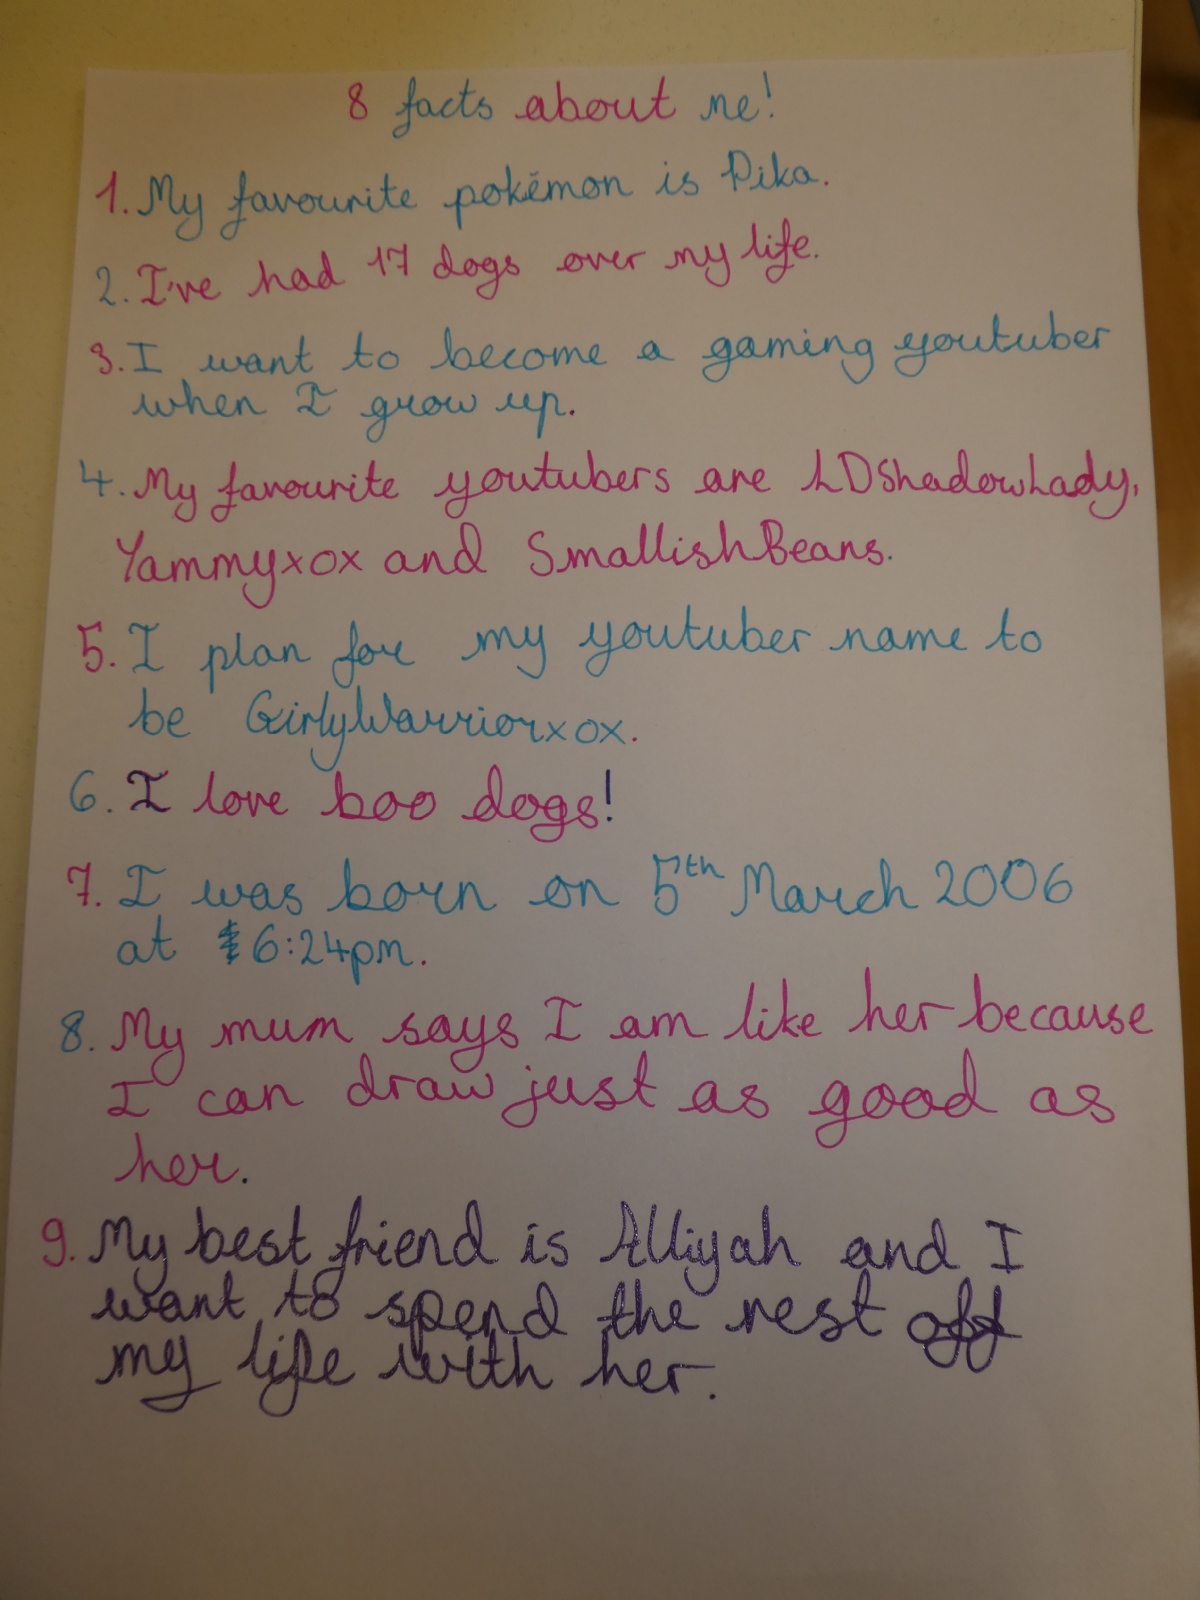 8 facts about me!
1. My favourite pokémon is Pika.
2. I've had 17 dogs over my life.
3. I want to become a gaming youtuber
when I grow up.
4. My favourite youtubers are LDShadowLady,
Yammyxox and SmallishBeans.
5. I plan for my youtuber name to
be GirlyWarriorxox.
6. I love boo dogs!
7. I was born on 5th March 2006
at 6:24pm.
8. My mum says I am like her because
I can draw just as good as
her.
9. My best friend is Alliyah and I
want to spend the rest off
my life with her.